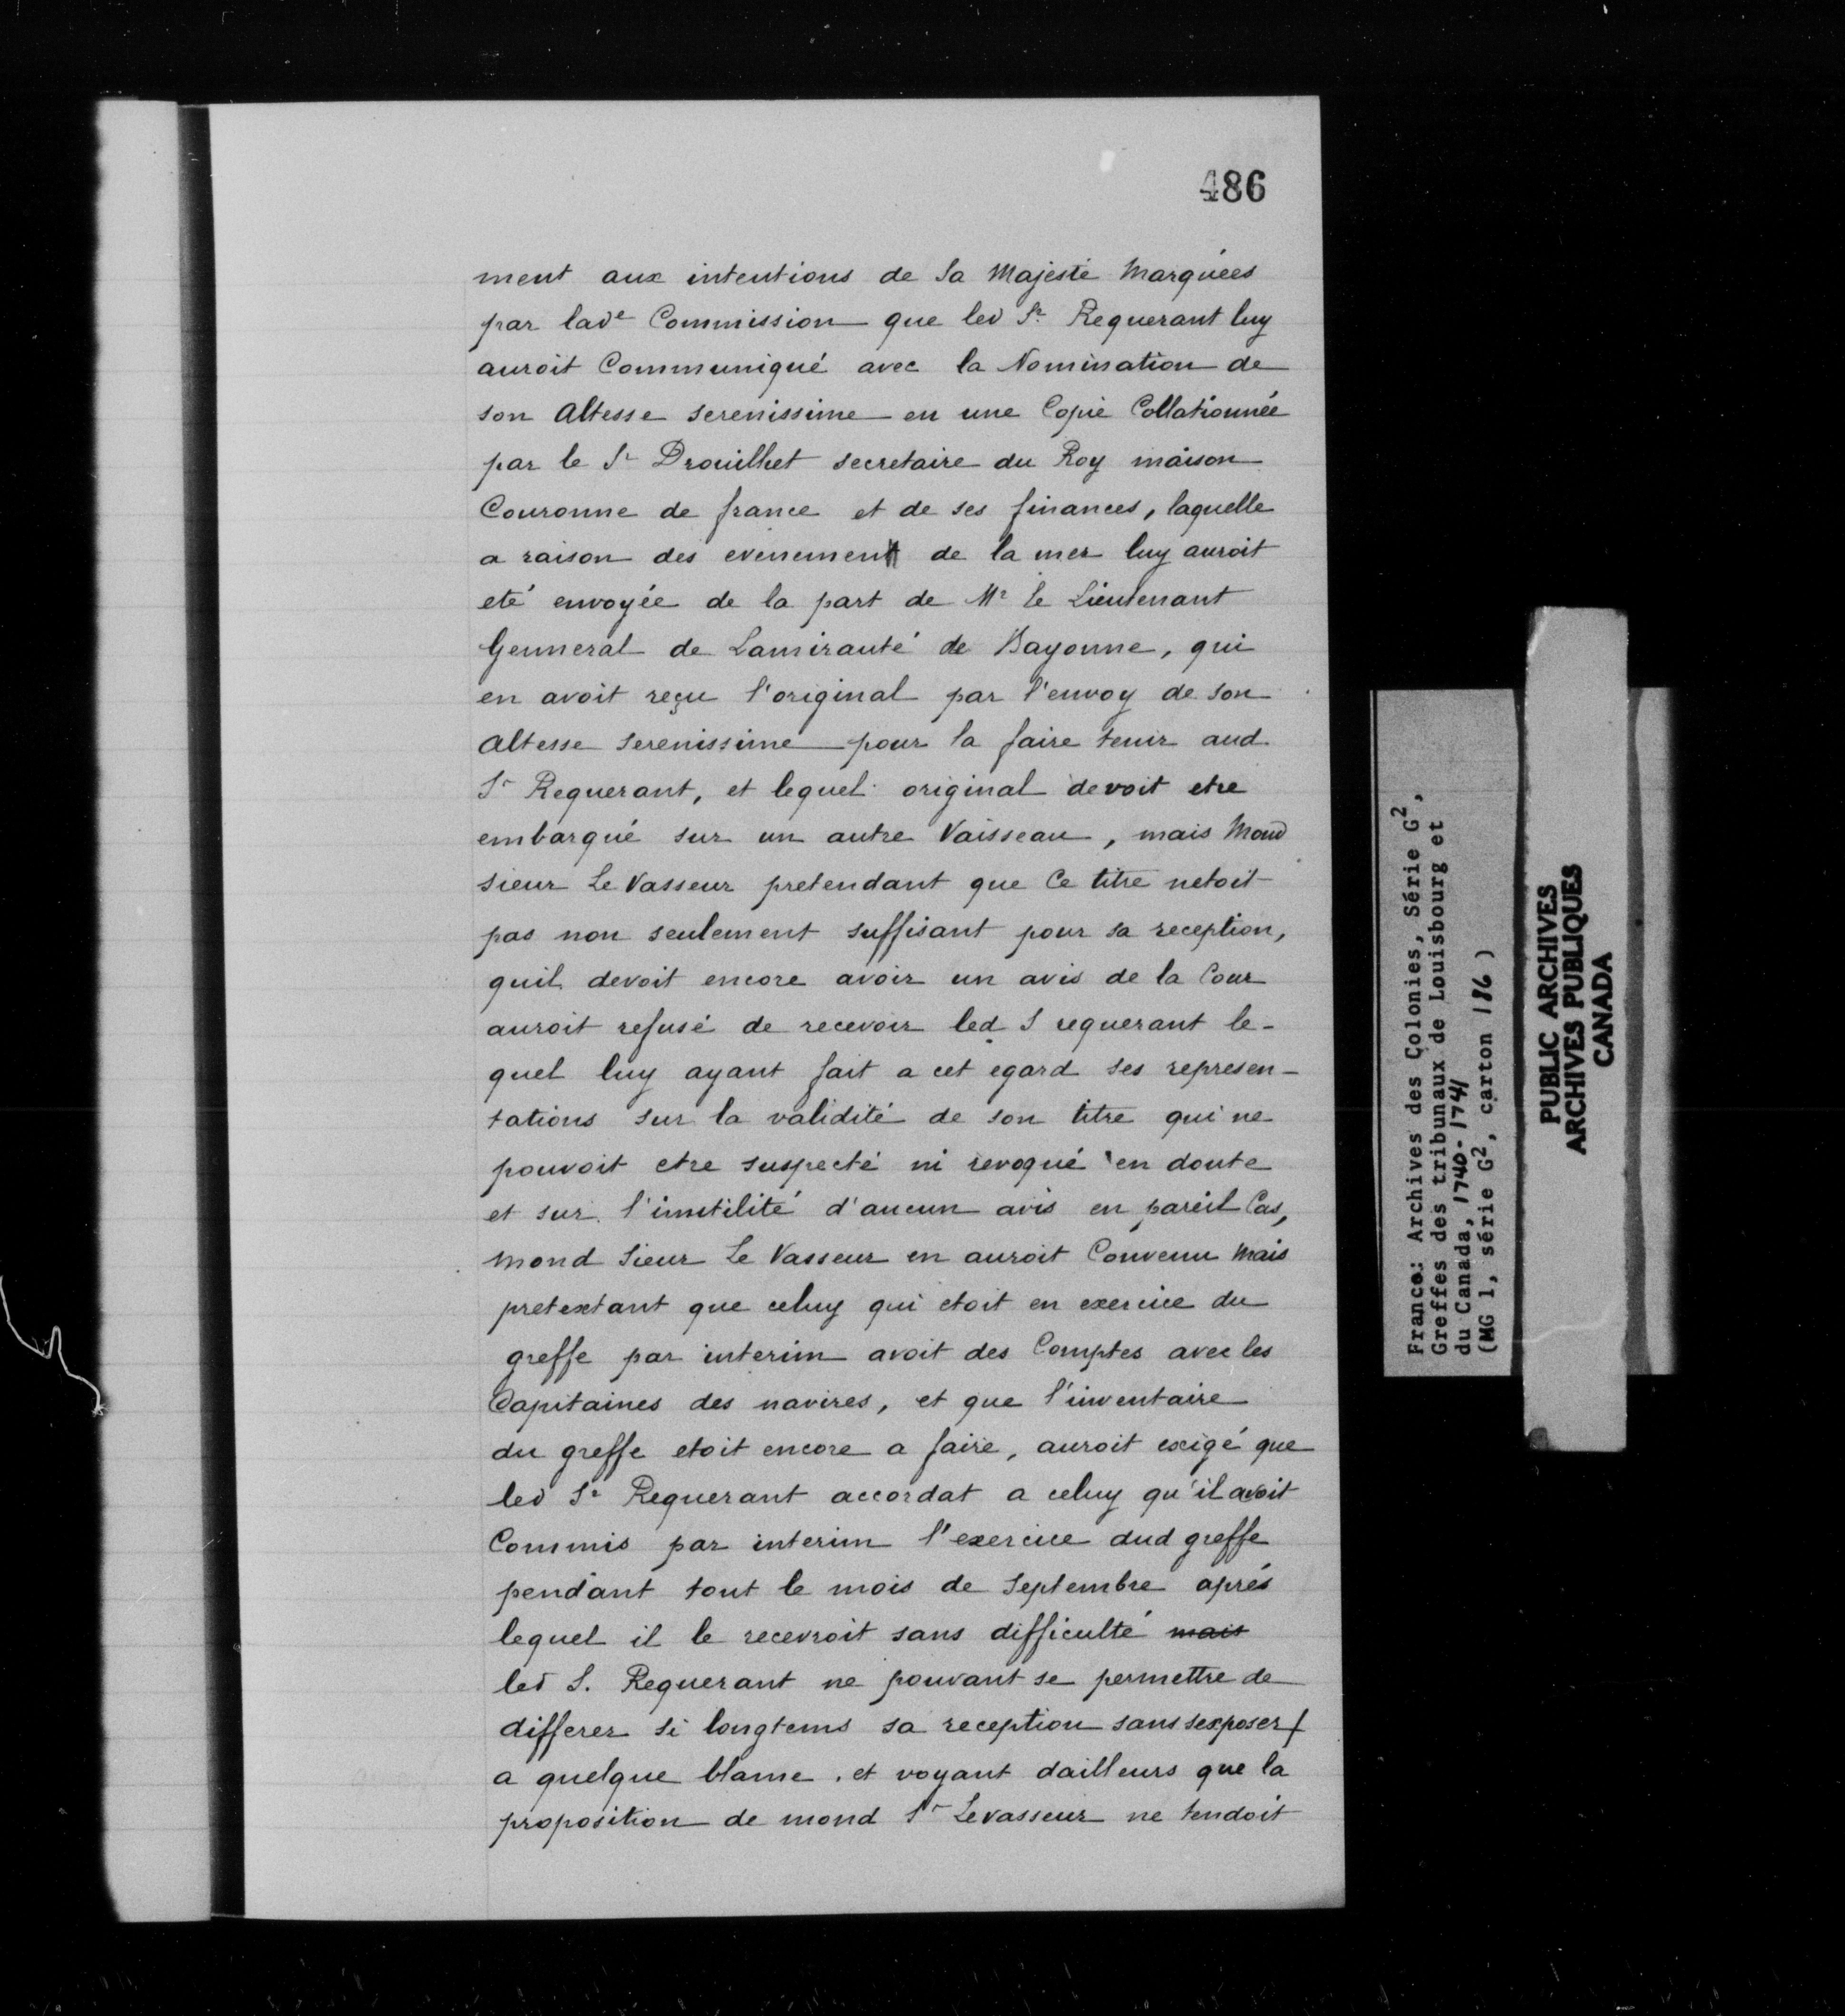 486
ment aux intentions de Sa Majesté Marquées
par lad^e Commission que led S^r Requerant luy
auroit Communiqué avec la Nomination de
son Altesse serenissime en une Copie Collationnée
par le S^r Drouilhet secretaire du Roy maison
Couronne de france et de ses finances, laquelle
a raison des evenement de la mer luy auroit
eté envoyée de la part de M^r le Lieutenant
Genneral de Lamirauté de Bayonne, qui
en avoit reçu l'original par l'envoy de son
Altesse Serenissime pour la faire tenir aud
S^r Requerant, et lequel original devoit etre
embarqué sur un autre Vaisseau, mais Mond
sieur Le Vasseur pretendant que Ce titre netoit
pas non seulement suffisant pour sa reception,
quil devoit encore avoir un avis de la Cour
auroit refusé de recevoir led S requerant le-
quel luy ayant fait a cet egard ses represen-
tations sur la validité de son titre qui ne
pouvoit etre suspecté ni revoqué en doute
et sur l'inutilité d'aucun avis en pareil Cas,
mond Sieur Le Vasseur en auroit Convenu Mais
pretextant que celuy qui etoit en exercice du
greffe par interim avoit des Comptes avec les
Capitaines des navires, et que l'inventaire
du greffe etoit encore a faire, auroit exigé que
led S^r Requerant accordat a celuy qu'il avoit
Commis par interim l'exercice dud greffe
pendant tout le mois de Septembre aprés
lequel il le recevroit sans difficulté mais
led S. Requerant ne pouvant se permettre de
differer si longtems sa reception sans sexposer
a quelque blame, et voyant dailleurs que la
proposition de mond S^r Levasseur ne tendoit
France: Archives des Colonies, Série G²,
Greffes des tribunaux de Louisbourg et
du Canada, 1740-1741
(MG 1, série G², carton 186 )
PUBLIC ARCHIVES
ARCHIVES PUBLIQUES
CANADA